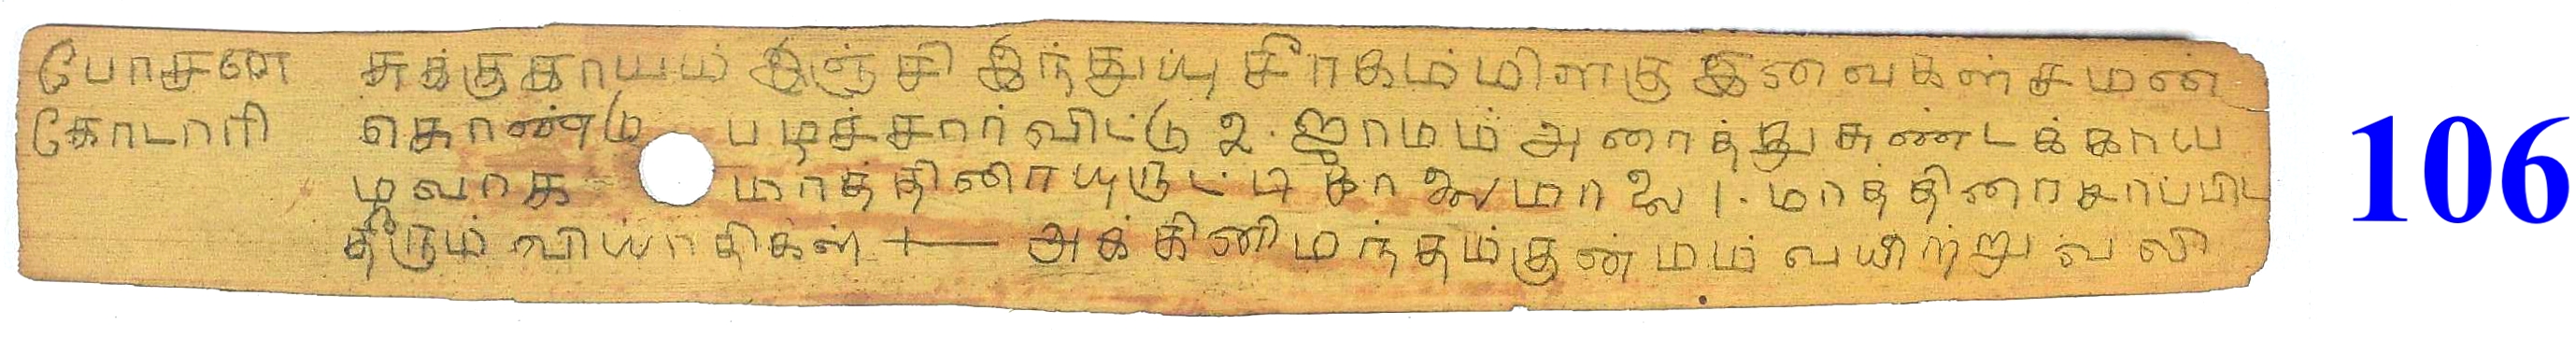 போசன சுக்குகாயம் இஞ்சி இந்துப்பு சீரகம்மிளகு இவைகள்சமன்
கோடாரி கொண்டு படிச்சார்விட்டு ௨. ஜாமம் அரைத்து சுண்டக்காய
ழவாக மாத்திரையுருட்டி காலைமாலை ௧. மாத்திரைசாப்பிட
தீரும் வியாதிகள் +— அக்கினிமந்தம்குன்மம் வயிற்று வலி
106